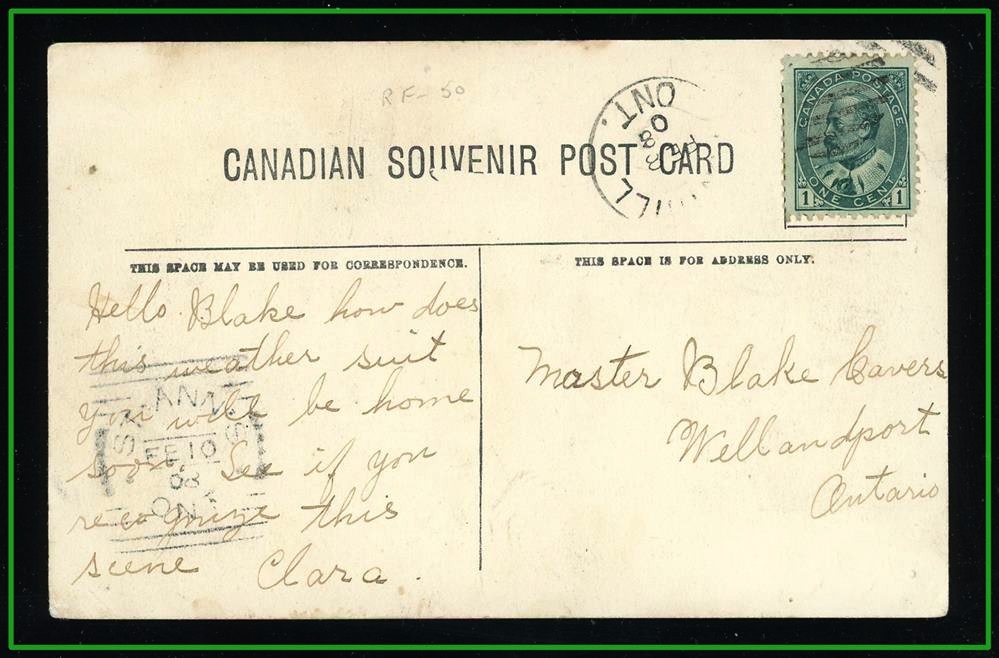 RF-50
CANADIAN SOUVENIR POST CARD
ONT.
CANADA POSTAGE
1 ONE CENT 1
THIS SPACE MAY BE USED FOR CORRESPONDENCE.
THIS SPACE IS FOR ADDRESS ONLY.
Hello Blake how does
this weather suit
you will be home
soon. See if you
recognize this
scene Clara.
Master Blake Cavers
Wellandport
Ontario
FE 10
08
ONT